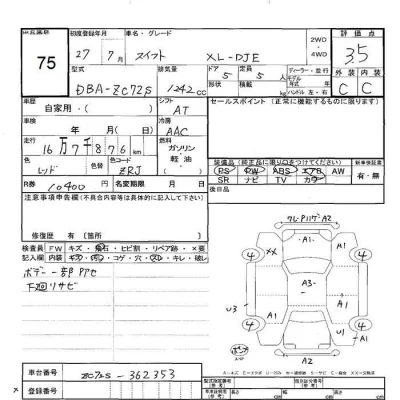 75
初度登録年月 車名・グレード
27年7月 スイフト XL-DJE
2WD・4WD
評価点
3.5
型式 排気量 ドア 定員
DBA-ZC72S 1242cc 5 5人
形状 積載 kg
ディーラー・並行
モデル年式
ハンドル 左・右
外装 内装
C C
車歴 自家用・( )
シフト AT
セールスポイント (正常に機能するものに限る)
車検 年 月
冷房 AAC
走行 16万7千876km
燃料 ガソリン・軽油・
色 レッド 色替 色コード ZRJ
装備品 (純正品に取り〇をつけてください)
PS PW ABS エアB AW
SR ナビ TV カワ
新車保証書 有・無
R券 10400 名変期限 月 日
後日品
注意事項申告欄 (不具合内容等は具体的に記入して下さい)
修復歴 有 (箇所 )
検査員 FW キズ・飛石・ヒビ割・リペア跡・×要
記入欄 内装 キズ・汚レ・コゲ・穴・スレ・キレ・破レ
ボデー一部 PTセ
下廻リサビ
A1
XX A1
4 4
A3
U3 A1
4 4
A1
A2
車台番号 ZC72S-362353
登録番号